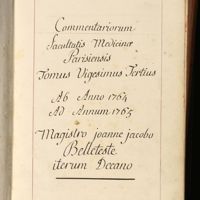 Commentariorum
facultatis Medicinæ
Parisiensis
Tomus Vigesimus Tertius
Ab Anno 1764
Ad Annum 1765
Magistro joanne jacobo
Belleteste
iterum Decano